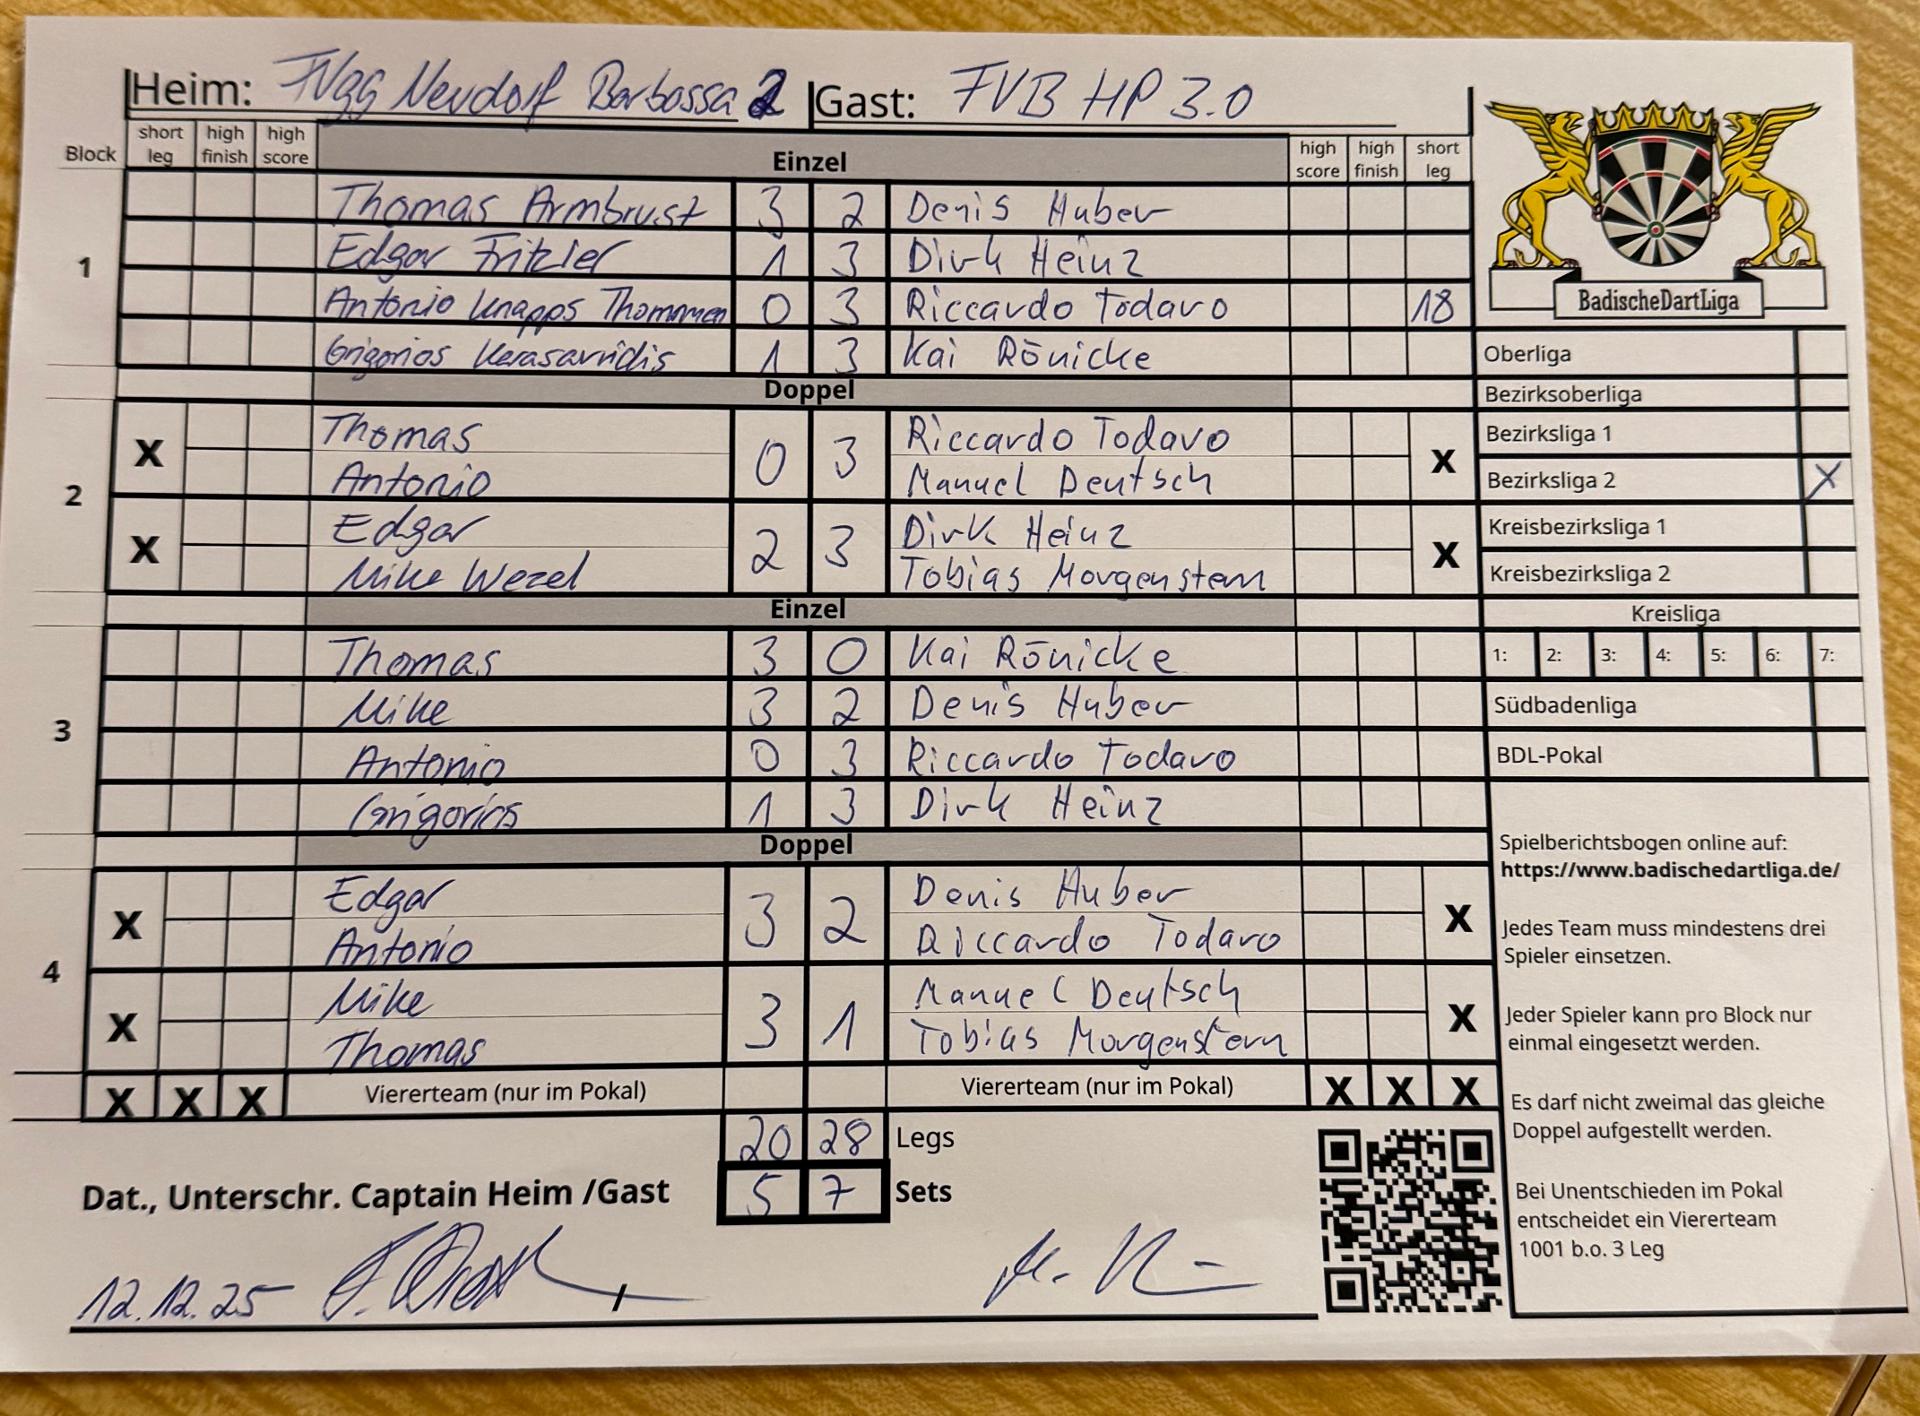 Heim: FVgg Neudorf Barbossa 2 Gast: FVB HP 3.0
Block short leg high finish high score Einzel high score high finish short leg
1
Thomas Armbrust 3 2 Denis Huber
Edgar Fritzler 1 3 Dirk Heinz
Antonio Knapps Thommen 0 3 Riccardo Todavo 18
Grigorios Kerasavvidis 1 3 Kai Rönicke
Doppel
2
X Thomas 0 3 Riccardo Todavo X
Antonio Manuel Deutsch
X Edgar 2 3 Dirk Heinz X
Mike Wezel Tobias Morgenstern
Einzel
3
Thomas 3 0 Kai Rönicke
Mike 3 2 Denis Huber
Antonio 0 3 Riccardo Todavo
Grigorios 1 3 Dirk Heinz
Doppel
4
X Edgar 3 2 Denis Huber X
Antonio Riccardo Todaro
X Mike 3 1 Manuel Deutsch X
Thomas Tobias Morgenstern
X X X Viererteam (nur im Pokal) Viererteam (nur im Pokal) X X X
20 28 Legs
Dat., Unterschr. Captain Heim /Gast 5 7 Sets
12.12.25
BadischeDartLiga
Oberliga
Bezirksoberliga
Bezirksliga 1
Bezirksliga 2 X
Kreisbezirksliga 1
Kreisbezirksliga 2
Kreisliga
1: 2: 3: 4: 5: 6: 7:
Südbadenliga
BDL-Pokal
Spielberichtsbogen online auf:
https://www.badischedartliga.de/
Jedes Team muss mindestens drei
Spieler einsetzen.
Jeder Spieler kann pro Block nur
einmal eingesetzt werden.
Es darf nicht zweimal das gleiche
Doppel aufgestellt werden.
Bei Unentschieden im Pokal
entscheidet ein Viererteam
1001 b.o. 3 Leg